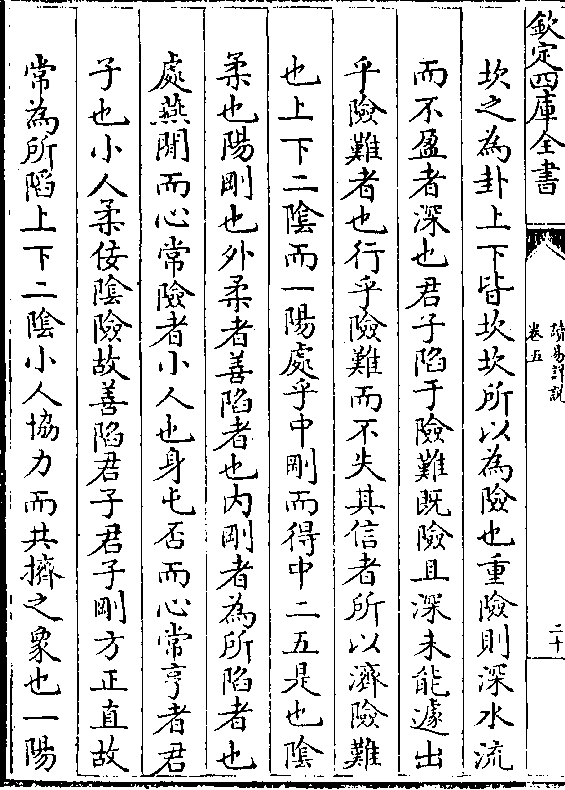 欽定四庫全書
讀易詳說
卷五
二十
坎之為卦上下皆坎坎所以為險也重險則深水流
而不盈者深也君子陷于險難既險且深未能遽出
乎險難者也行乎險難而不失其信者所以濟險難
也上下二陰而一陽處乎中剛而得中二五是也陰
柔也陽剛也外柔者善陷者也内剛者為所陷者也
處燕閒而心常險者小人也身屯否而心常亨者君
子也小人柔佞陰險故善陷君子君子剛方正直故
常為所陷上下二陰小人協力而共擠之象也一陽